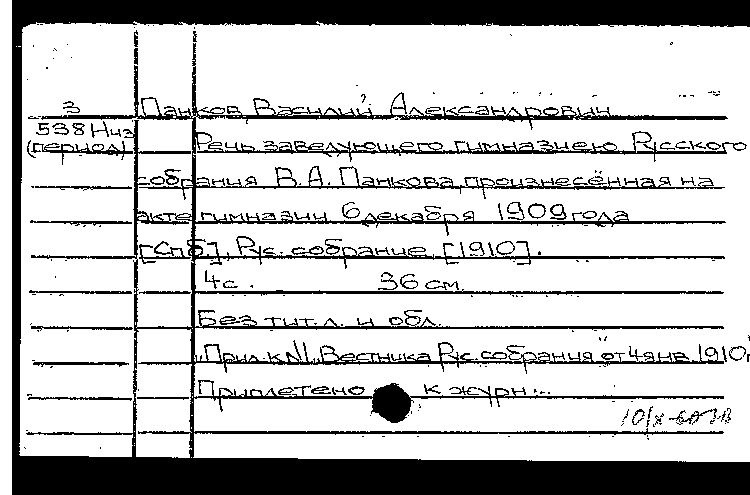 3 Панков, Василий Александрович
538 Низ
(период) Речь заведующего гимназиею Русского
собрания В.А. Панкова, произнесённая на
акте гимназии 6 декабря 1909 года
[Спб.], Рус. собрание, [1910].
4 с. 36 см.
Без тит. л. и обл.
"Прил. к №1 "Вестника Рус. собрания" от 4 янв. 1910г.
Приплетено к журн:.